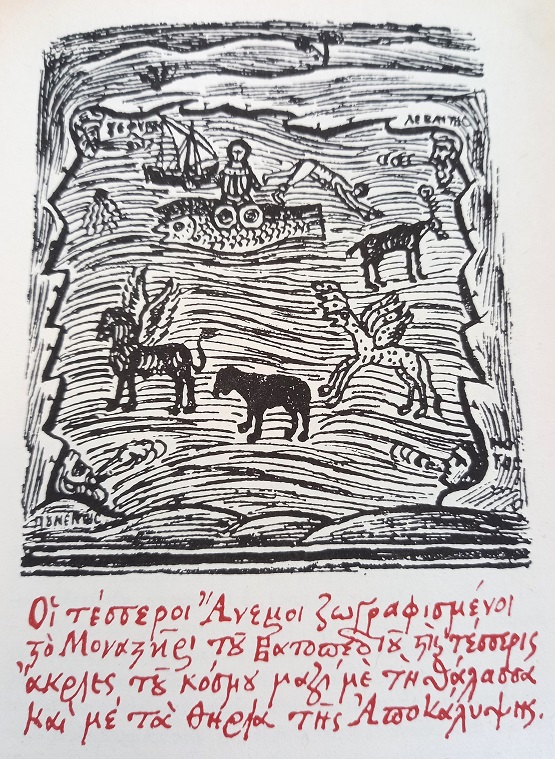 ΛΕΒΑΝΤΗΣ
ΝΟ
ΤΟΣ
ΠΟΝΕΝΤΕΣ
Οἱ τέσσεροι Ἄνεμοι ζωγραφισμένοι
στὸ Μοναστῆρι τοῦ Βατοπεδίου στὶς τέσσερις
ἄκρες τοῦ κόσμου μαζὶ μὲ τὴ θάλασσα
καὶ μὲ τὰ θηρία τῆς Ἀποκάλυψης.